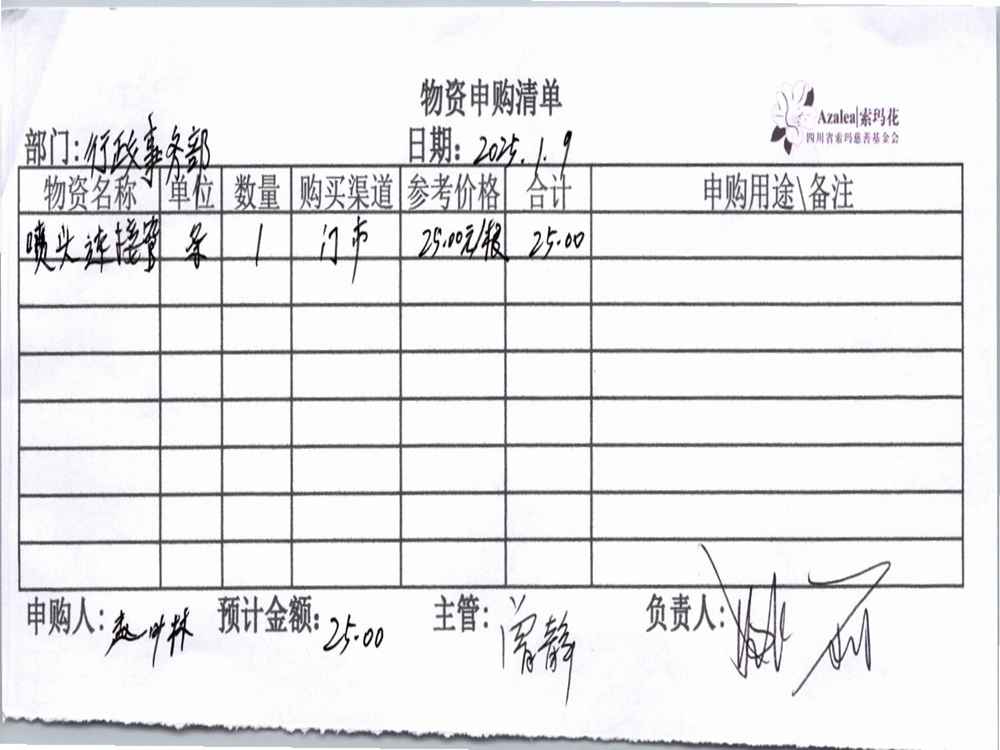 物资申购清单
Azalea|索玛花
四川省索玛慈善基金会
部门:行政事务部 日期:2025.1.9
物资名称 单位 数量 购买渠道 参考价格 合计 申购用途\备注
喷头连接管 条 1 门市 25.00元/根 25.00
申购人: 预计金额:25.00 主管:曾静 负责人: